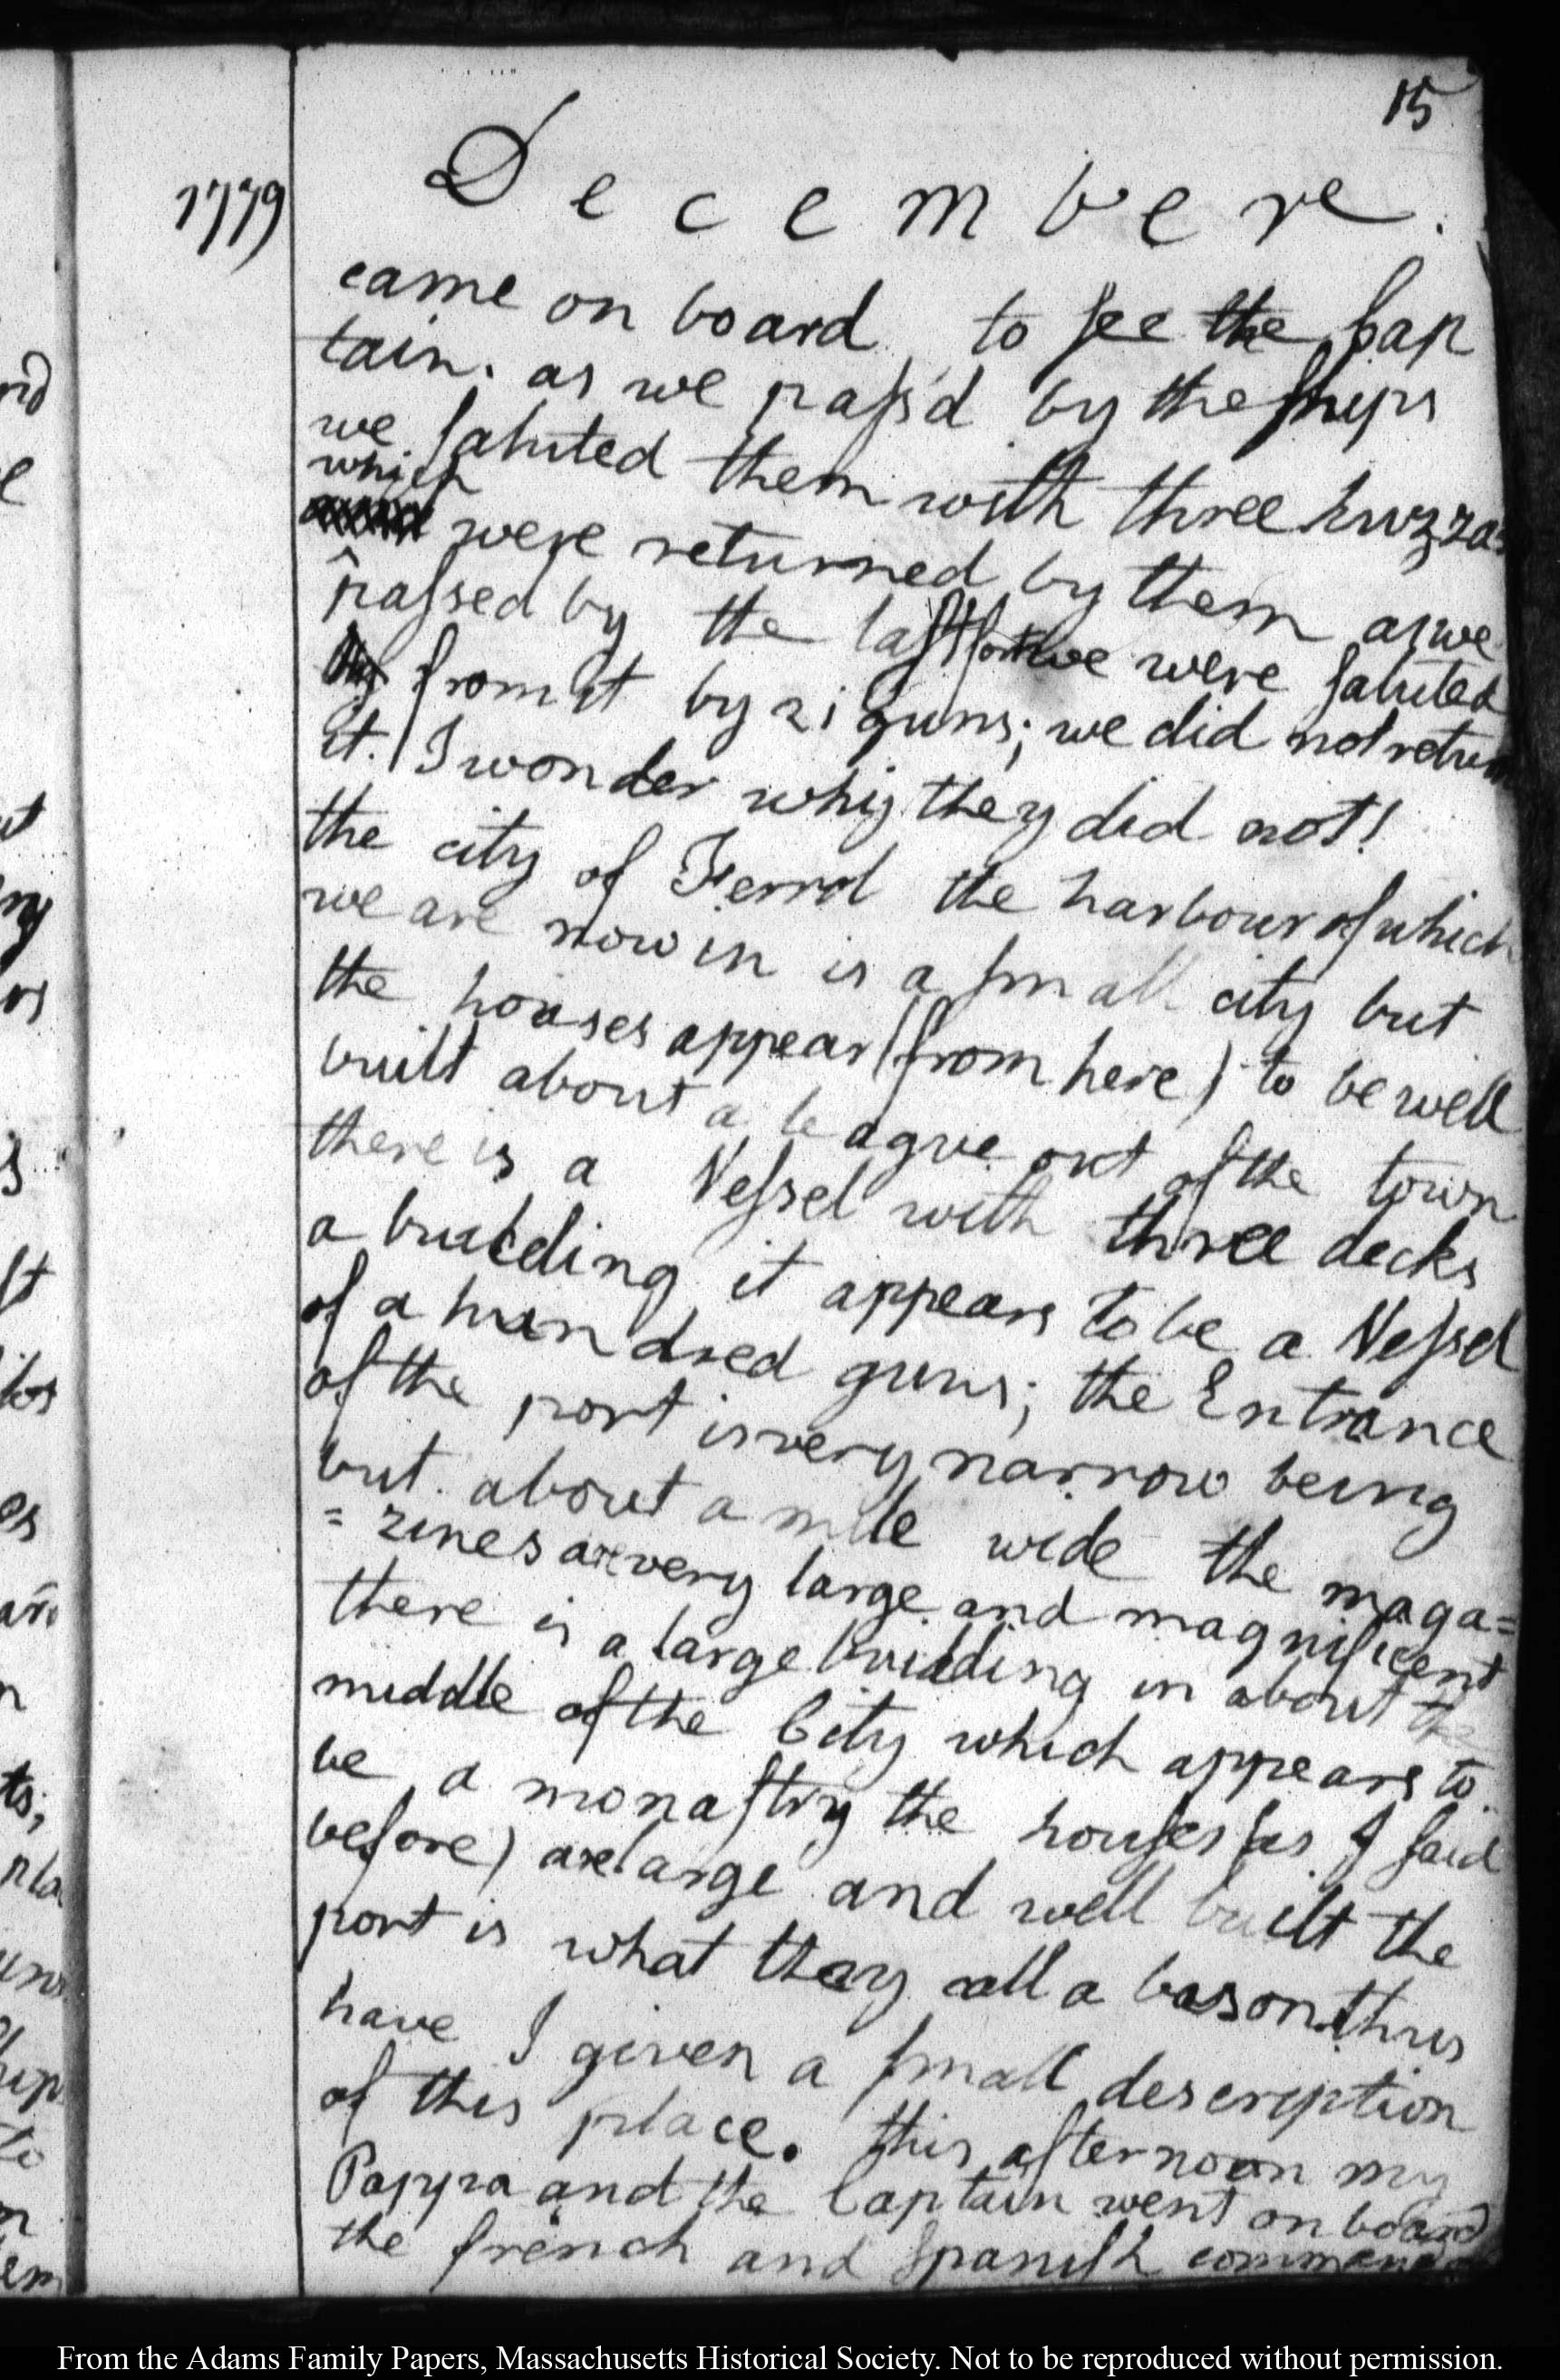 15
1779
Decembere.
came on board, to see the Cap
tain. as we pass'd by the ships
we saluted them with three huzzas
which
were returned by them as we
passed by the last fort we were saluted
from it by 21 guns; we did not return
it. I wonder whiy they did not!
the city of Ferrol the harbour of which
we are now in is a small city but
the houses appear (from here) to be well
built about a league out of the town
there is a Vessel with three decks
a building it appears to be a Vessel
of a hundred guns; the Entrance
of the port is very narrow being
but about a mile wide the maga=
=zines are very large and magnificent
there is a large building in about the
middle of the City which appears to
be a monastry the houses (as I said
before) are large and well built the
port is what they call a bason. thus
have I given a small description
of this place. this afternoon my
Pappa and the Captain went on board
the french and spanish
From the Adams Family Papers, Massachusetts Historical Society. Not to be reproduced without permission.